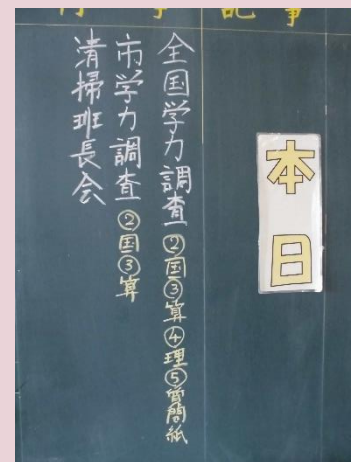 行事
記事
本日
全国学力調査②国③算④理⑤質問紙
市学力調査②国③算
清掃班長会